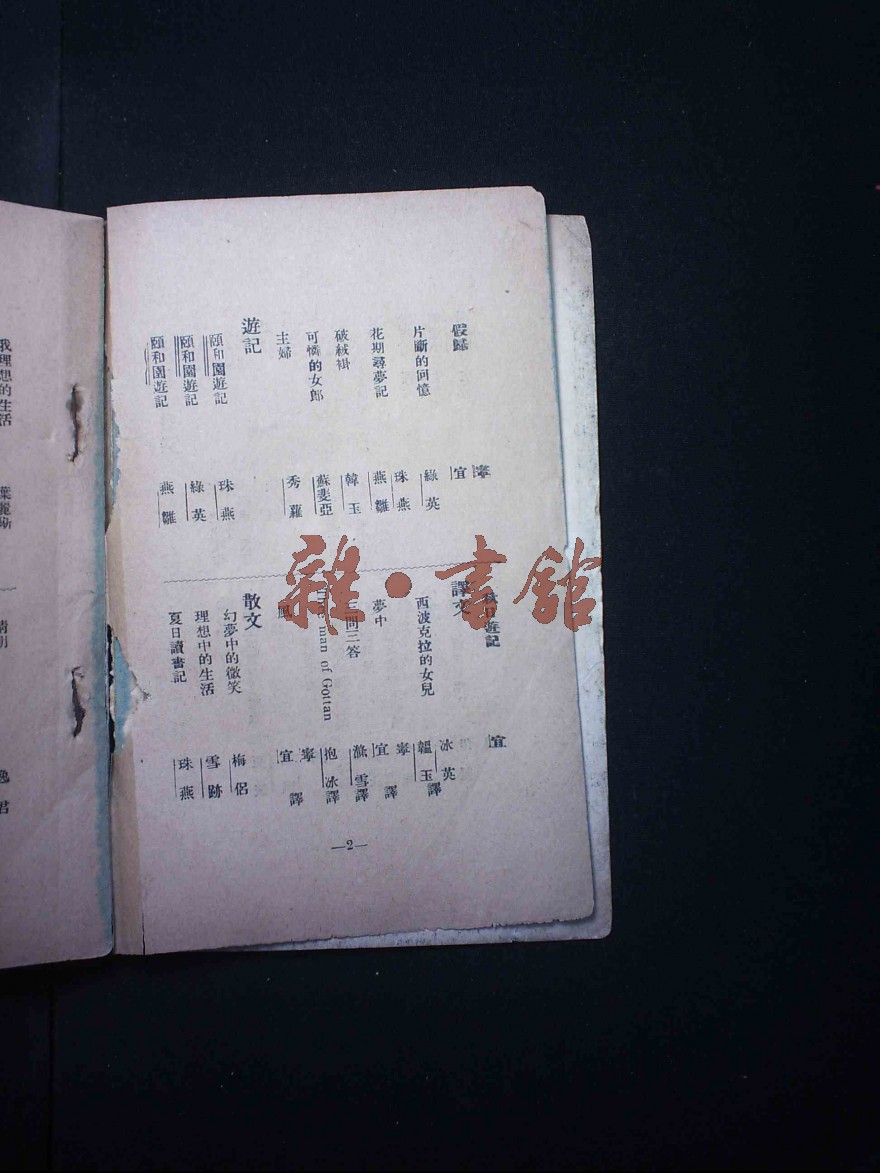 假歸
寧
宜
片斷的回憶
綠英
花期尋夢記
珠燕
破絨褂
燕雛
可憐的女郎
韓玉
主婦
蘇斐亞
秀蘿
遊記
頤和園遊記
珠燕
頤和園遊記
綠英
頤和園遊記
燕雛
遊記
宜
譯文
西波克拉的女兒
冰英
韞玉譯
夢中
寧
宜譯
三問三答
雪譯
man of Gottan
抱冰譯
風
寧
宜譯
散文
幻夢中的微笑
梅侶
理想中的生活
雪跡
夏日讀書記
珠燕
—2—
我理想的生活
雜·書館